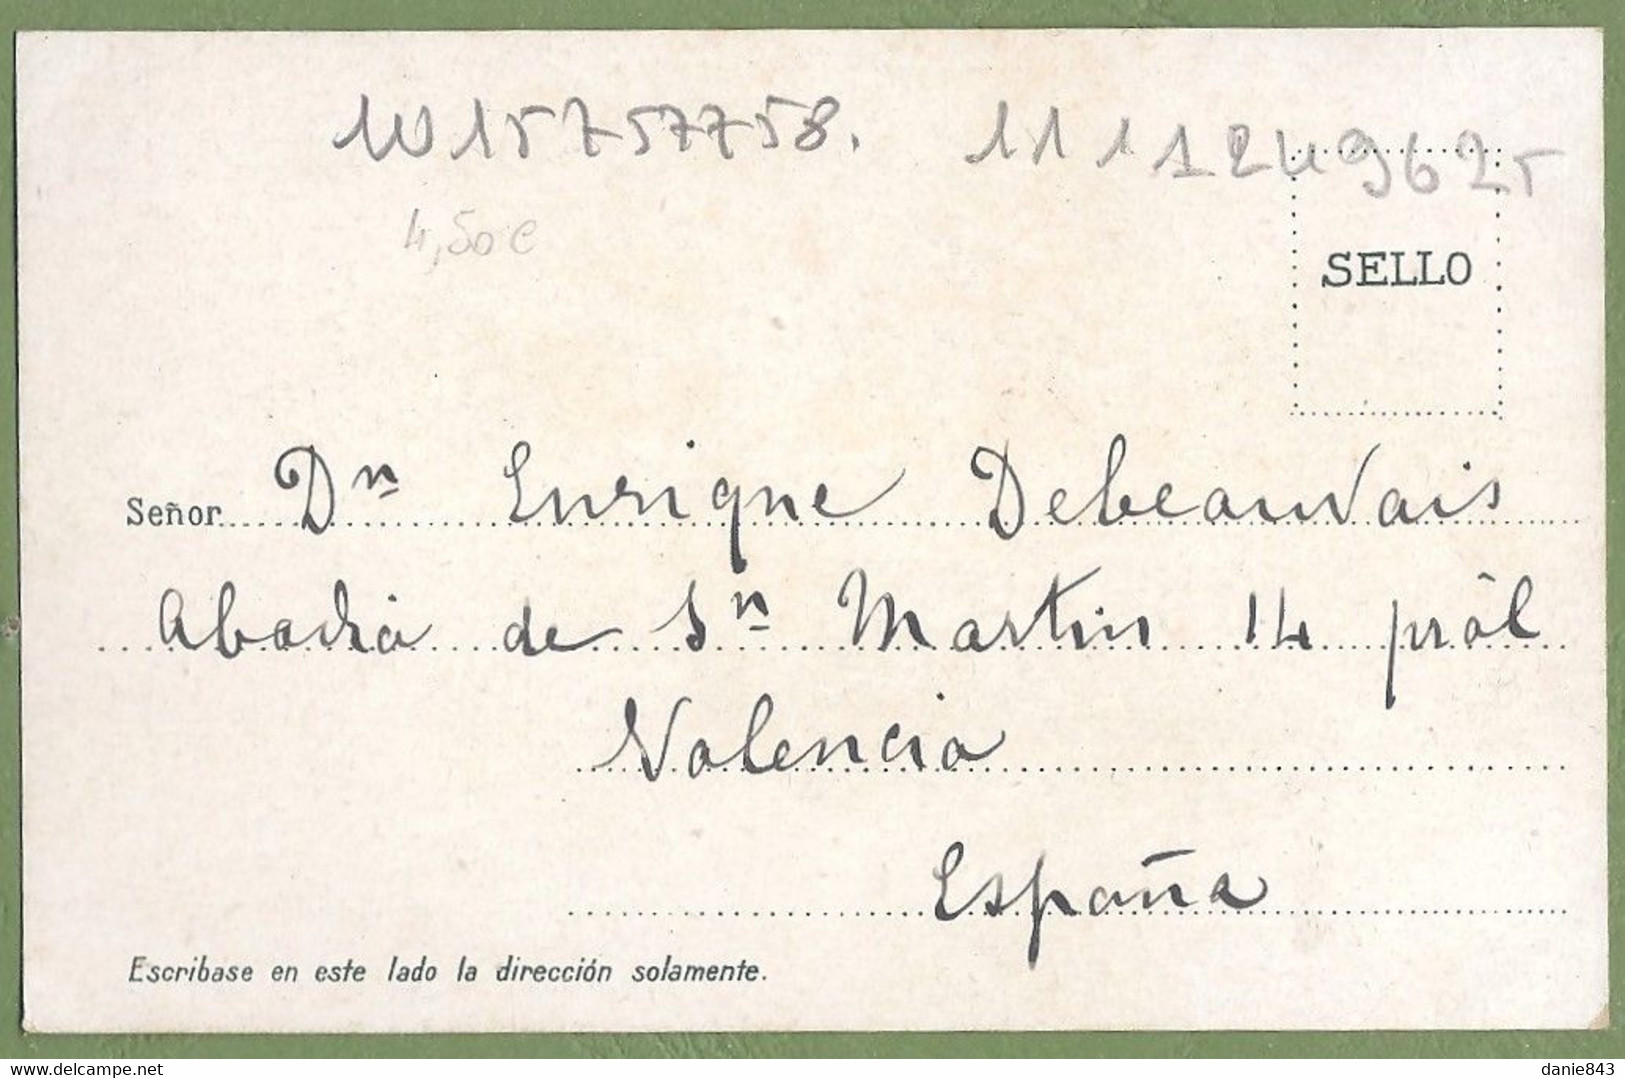 10 15757758. 11 1 1249625
4,50 e
SELLO
Señor Dn Enrique Debeauvais
Abadia de Sn Martin 14 pràl
Valencia
España
Escribase en este lado la dirección solamente.
www.delcampe.net
danie843